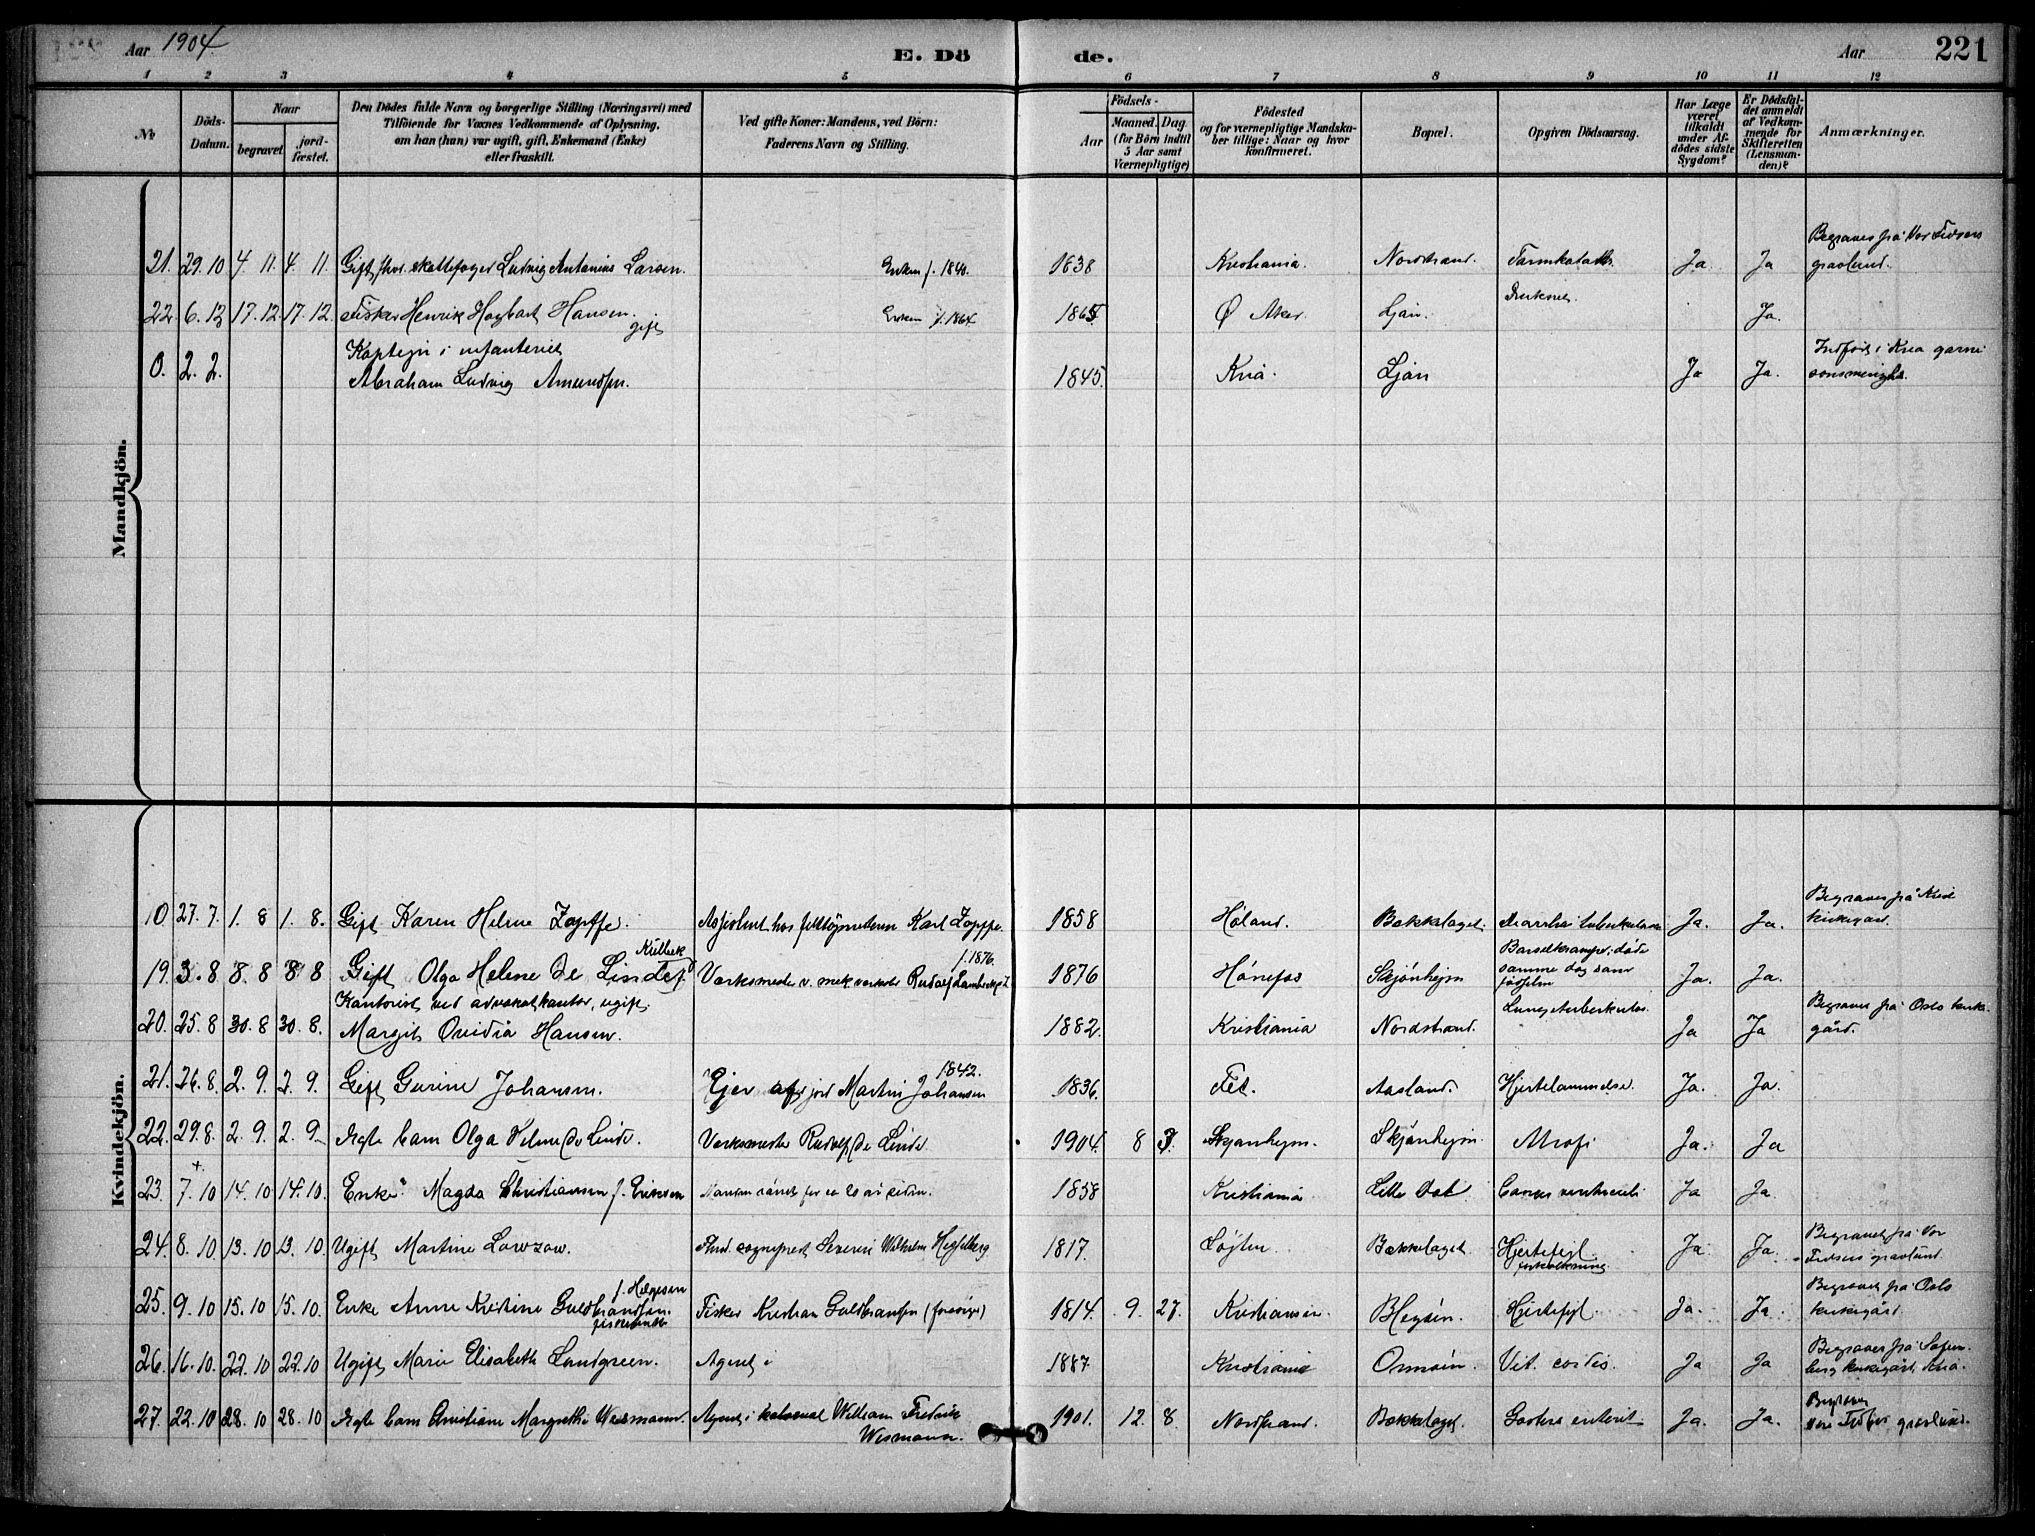 Aar 1904.
E. Dö
de.
Aar
221
1 2 3 4 5 6 7 8 9 10 11 12
No
Döds-Datum.
Naar
begravet
jord-fæstet.
Den Dödes fulde Navn og borgerlige Stilling (Næringsvei) med
Tilföiende for Voxnes Vedkommende af Oplysning,
om han (hun) var ugift, gift, Enkemand (Enke)
eller fraskilt.
Ved gifte Koner: Mandens, ved Börn:
Faderens Navn og Stilling.
Födsels-
Aar
Maaned. Dag.
(for Börn indtil
5 Aar samt
Værnepligtige)
Födested
og for værnepligtige Mandska-
ber tillige: Naar og hvor
konfirmeret.
Bopæl.
Opgiven Dödsaarsag.
Har Læge
været
tilkaldt
under Af-
dödes sidste
Sygdom?
Er Dödsfal-
det anmeldt
af Vedkom-
mende for
Skifteretten
(Lensman-
den)?
Anmærkninger.
Mandkjön.
21. 29.10 4. 11. 4. 11. Gift skattefoged Ludvig Antonius Larsen. Enken f. 1840. 1838 Kristiania. Nordstrand. Tarmkatarrh Ja. Ja Begraves på Vor Frelsers gravlund.
22. 6.12 17.12. 17.12. Fisker Henrik Hagbart Hansen. gift Enken f. 1864 1865 Ø Aker. Ljan. Druknet. Ja.
0. 2. 2. Kaptein i infanteriet
Abraham Ludvig Amundsen. 1845. Kria. Ljan Ja Ja. Indført i Kria garni
sonsmenighed.
Kvindekjön.
10 27. 7. 1. 8 1. 8. Gift Karen Helene Zapffe. Assistent hos felttøimesteren Karl Zapffe. 1858 Høland. Bækkelaget. tuberkulose Ja. Ja. Begraves på
kirkegård.
19. 3. 8 8. 8 8 8 Gift Olga Helene de Linde f. Kulbeck Værksmester v. mek. værksted Rudolf f. 1876. 1876 Hønefos Skjønheim Barselkramper; døde
samme dag som
fødselen Ja. Ja.
20. 25. 8 30. 8 30. 8. Kontorist ved advokatkontor, ugift
Margit Ovidia Hansen. 1882. Kristiania Nordstrand. Lungetuberkulos. Ja Ja Begraves på Oslo kirke-
gård.
21. 26. 8. 2. 9. 2. 9. Gift Gurine Johansen. Ejer af jord Martin Johansen 1842. 1836. Fet. Aasland. Hjertelammelse. Ja. Ja.
22. 29.8. 2. 9. 2. 9 Ægte barn Olga Helene de Linde. Værksmester Rudolf de Linde 1904. 8 3. Skjønheim. Skjønheim. Atrofi Ja. Ja
23. 7. 10 14. 10 14. 10. Enke Magda Christiansen f. Eriksen 1858 Kristiania Lille Dal Cancer ventriculi Ja Ja.
24. 8. 10 13. 10 13. 10. Ugift Martine Lowzow. sogneprest Severin Wilhelm Hesselberg 1817. Løiten. Bækkelaget. Hjertefejl.
forkalkning. Ja. Ja. Begravet på Vor
Frelsers gravlund.
25. 9. 10 15. 10 15. 10. Enke Anne Kristine Guldbrandsen. f. Helgesen Fisker Kristian Guldbransen (forrige) 1814. 9. 27. Kristiansen. Hjertefejl. Ja. Ja. Begravet på Oslo
kirkegård.
26. 16. 10. 22. 10 22. 10 Ugift Marie Elisabeth Lundgreen. Agent 1887. Kristiania Ormøin. Vit. cordis. Ja Ja Begraves på Sofien-
berg kirkegård, Kria.
27. 22. 10 28. 10 28. 10 Ægte barn Christiane Margrethe Wesmann. Agent i kolonial William Fredrik
Wesmann. 1901. 12. 8. Nordstrand. Bækkelaget. Gastro enterit Ja. Ja. Begraves
Vore Frelsers gravlund.